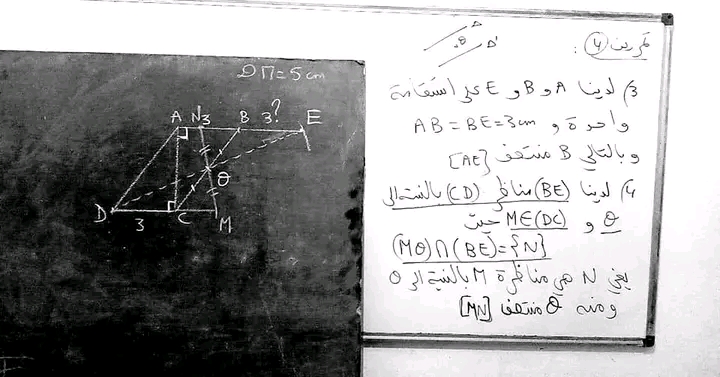 تمرين 4 :
Δ
θ
Δ'
3) لدينا A و B و E على استقامة
واحدة و AB = BE = 3cm
وبالتالي B منتصف [AE]
4) لدينا (BE) مناظر (CD) بالنسبة إلى
θ و M∈(DC) حيث
(Mθ)∩(BE)={N}
يعني N هي مناظرة M بالنسبة إلى θ
ومنه θ منتصف [MN]
DM = 5 cm
A N 3 B 3? E
θ
D 3 C M